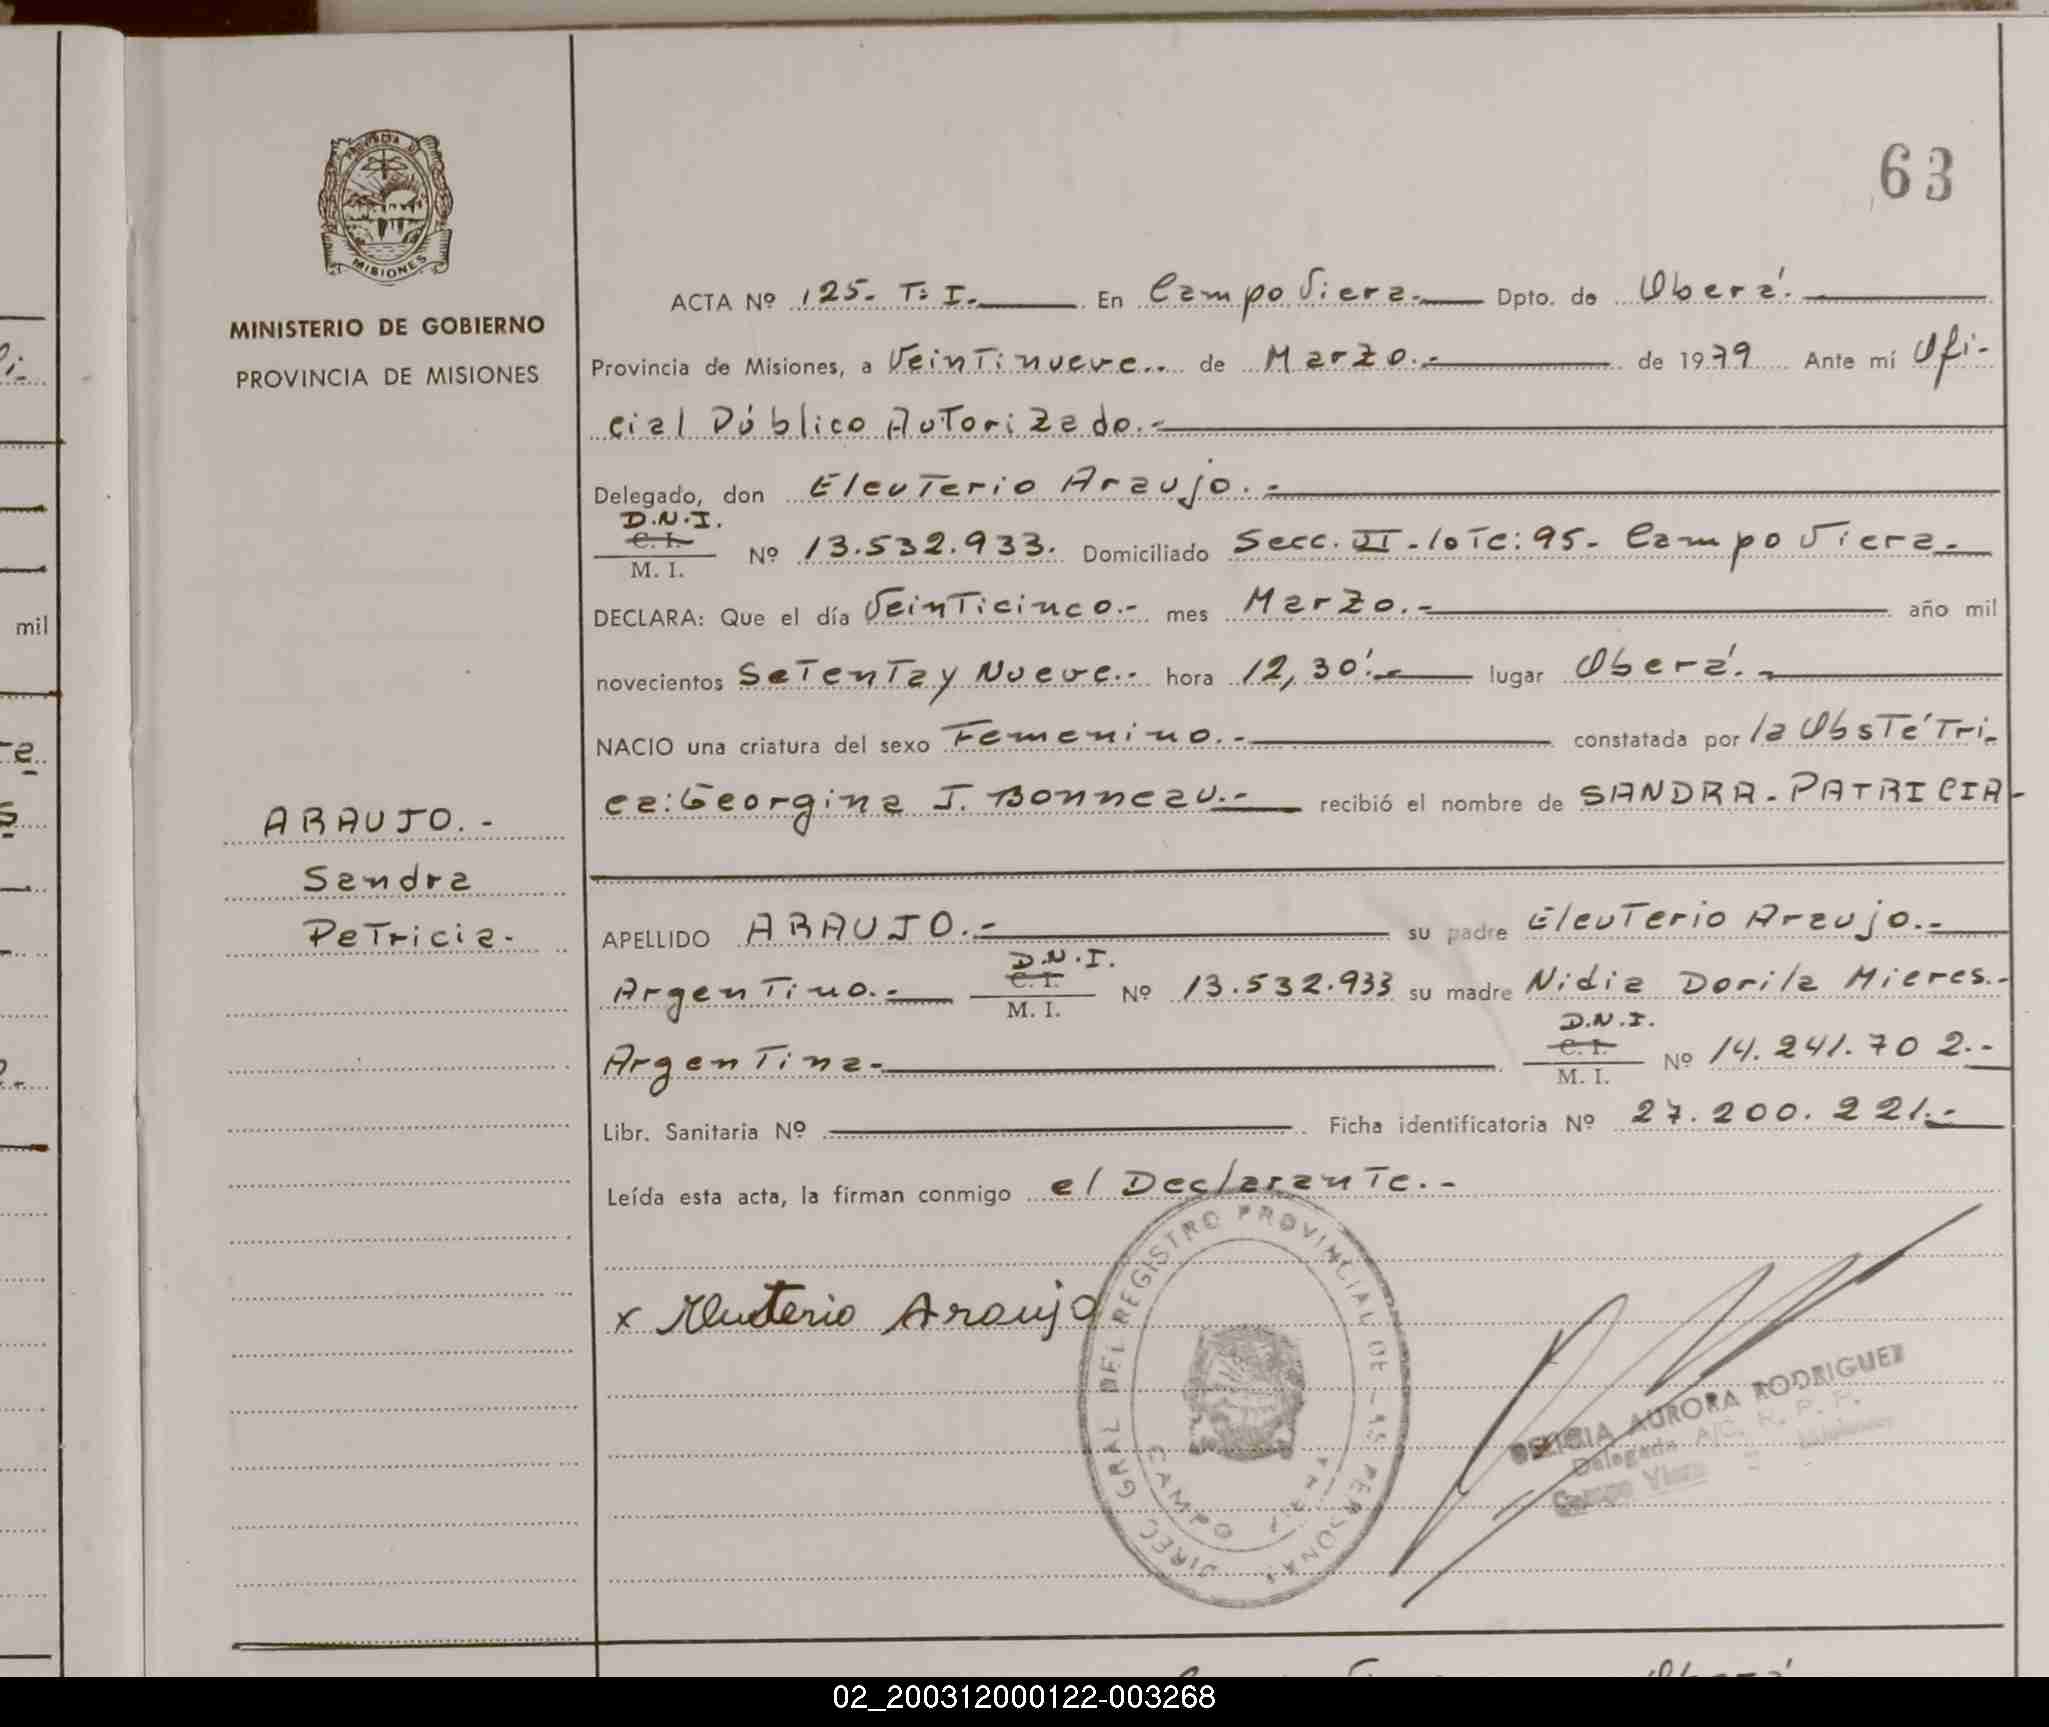 63
PROVINCIA DE
MISIONES
MINISTERIO DE GOBIERNO
PROVINCIA DE MISIONES
ACTA Nº 125.- T: I.- En Campo Viera.- Dpto. de Oberá.
Provincia de Misiones, a Veintinueve.. de Marzo.- de 1979 Ante mí Ofi-
cial Público Autorizado.-
Delegado, don Eleuterio Araujo.-
D.N.I.
C. I.
M. I.
Nº 13.532.933. Domiciliado Secc. II - lote: 95- Campo Viera.-
DECLARA: Que el día Veinticinco.- mes Marzo.- año mil
novecientos Setenta y Nueve.- hora 12,30'.- lugar Oberá.-
NACIO una criatura del sexo Femenino.- constatada por la Obstétri-
ca: Georgina J. Bonneau.- recibió el nombre de SANDRA - PATRICIA-
ARAUJO.-
Sandra
Patricia.
APELLIDO ARAUJO.- su padre Eleuterio Araujo.-
Argentino.- D.N.I.
C. I.
M. I.
Nº 13.532.933 su madre Nidia Dorila Mieres.-
Argentina.- D.N.I.
C. I.
M. I.
Nº 14.241.702.-
Libr. Sanitaria Nº Ficha identificatoria Nº 27.200.221.-
Leída esta acta, la firman conmigo el Declarante.-
x Eleuterio Araujo
DIREC. GRAL DEL REGISTRO PROVINCIAL DE LAS PERSONAS
CAMPO
AURORA RODRIGUEZ
Delegada A/C. R. P. P.
Campo Viera Misiones
mil
02_200312000122-003268